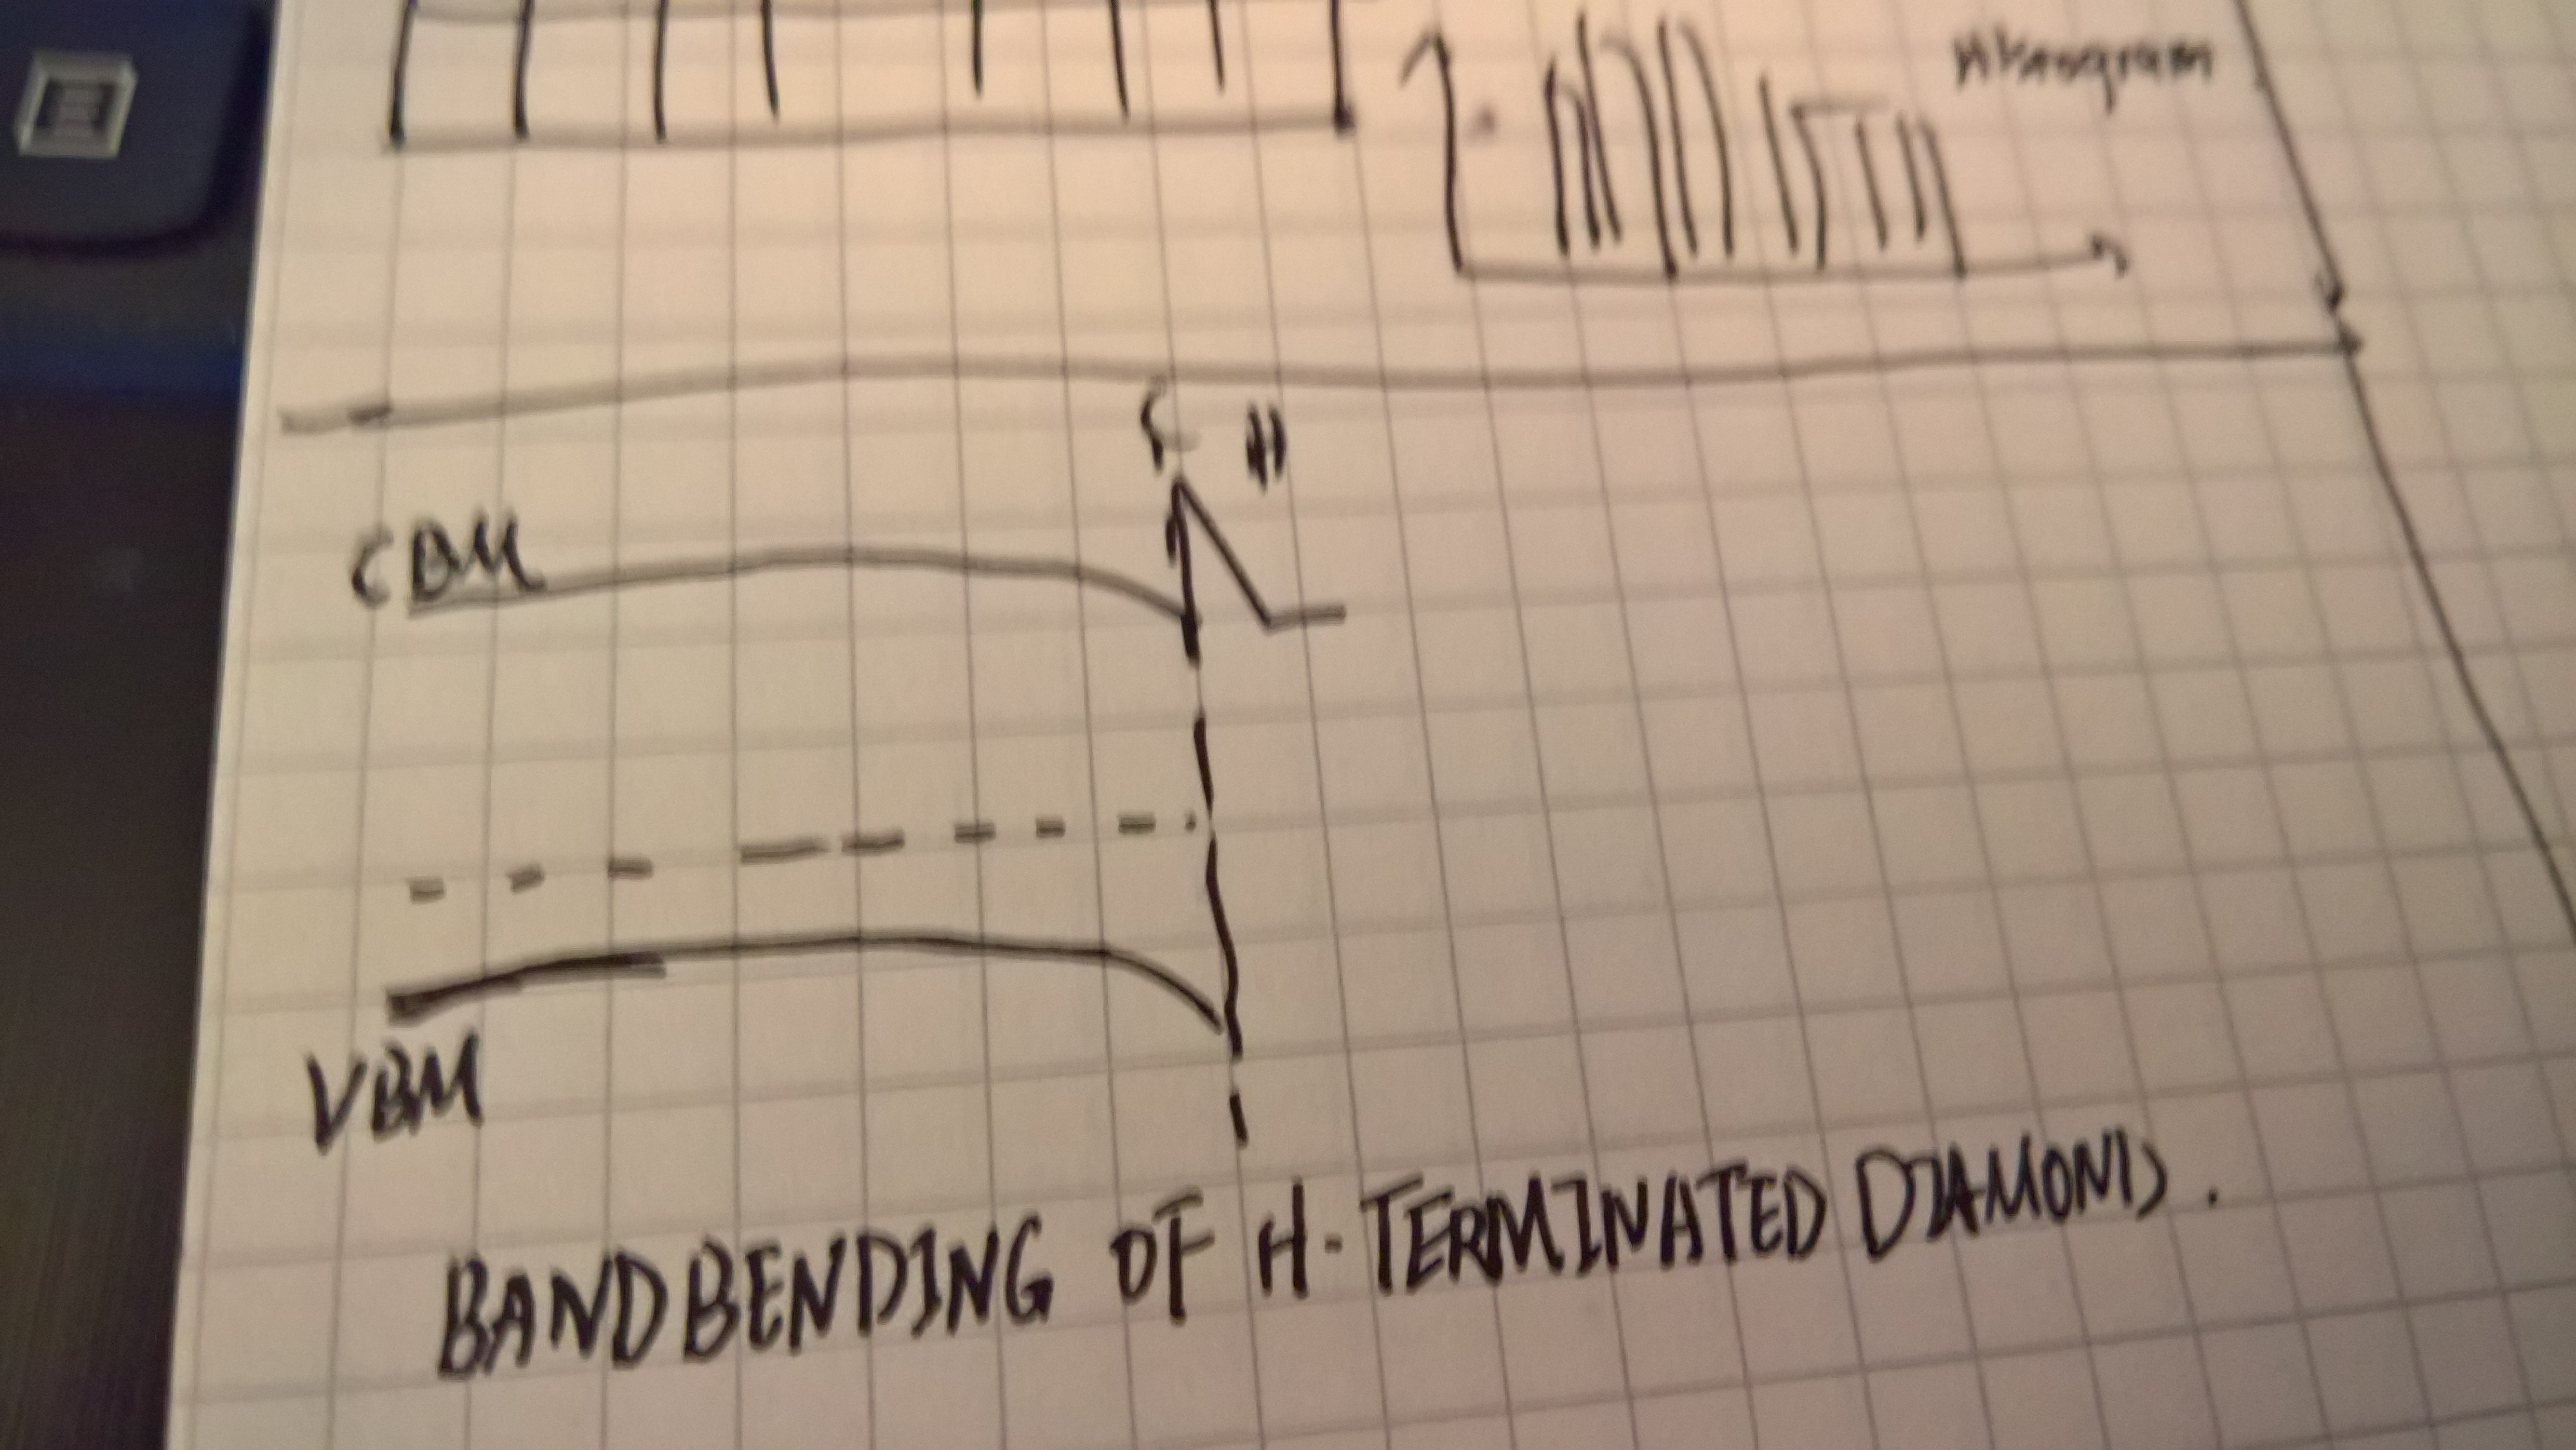 C H
CBM
VBM
BANDBENDING OF H-TERMINATED DIAMOND.